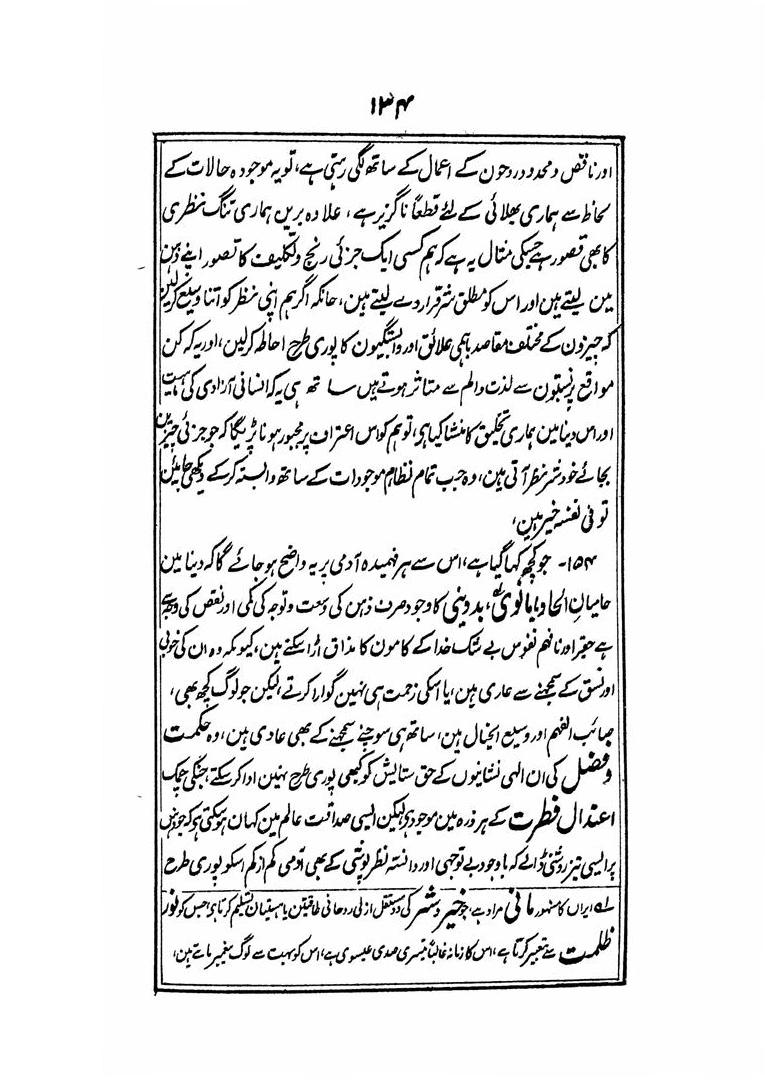 ۱۳۴
اور ناقص و محدود روحون کے اعمال کے ساتھ لگی رہتی ہے، تو یہ موجودہ حالات کے
لحاظ سے ہماری بھلائی کے لئے قطعاً ناگزیر ہے، علاوہ برین ہماری تنگ نظری
کا بھی قصور ہے جسکی مثال یہ ہے کہ ہم کسی ایک جزئی رنج و تکلیف کا تصور اپنے ذہن
مین لیتے ہین اور اس کو مطلق شر قرار دے لیتے ہین، حالانکہ اگر ہم اپنی نظر کو اتنا وسیع کرلین
کہ چیزون کے مختلف مقاصد باہمی علائق اور وابستگیون کا پوری طرح احاطہ کرلین، اور یہ کہ کن
مواقع پر نستبون سے لذت و الم سے متاثر ہوتے ہیں ساتھ ہی یہ کہ انسانی آزادی کی ماہیت
اور اس دنیا مین ہماری تخلیق کا منشا کیا ہی، تو ہم کو اس اعتراف پر مجبور ہونا پڑیگا کہ جو جزئی چیزین
بجائے خود شر نظر آتی ہین، وہ جب تمام نظام موجودات کے ساتھ وابستہ کرکے دیکھی جائین
تو فی نفسہ خیر ہین،
۱۵۴- جو کچھ کہا گیا ہے، اس سے ہر فہمیدہ آدمی پر یہ واضح ہوجائے گا کہ دنیا مین
حامیانِ الحاد یا مانوی لہ، بددینی کا وجود صرف ذہن کی وسعت و توجہ کی کمی اور نقص کی وجہ سے
ہے حقیر اور نافہم نفوس بے شک خدا کے کامون کا مذاق اڑا سکتے ہین، کیونکہ وہ ان کی خوبی
اور نسق کے سمجھنے سے عاری ہین، یا اسکی زحمت ہی نہین گوارا کرتے، لیکن جو لوگ کچھ بھی،
صائب الفہم اور وسیع الخیال ہین، ساتھ ہی سوچنے سمجھنے کے بھی عادی ہین، وہ حکمت
و فضل کی ان الٰہی نشانیوں کے حق ستایش کو کبھی پوری طرح نہین ادا کرسکتے جنکی چمک
اعتدال فطرت کے ہر ذرہ مین موجود ہی لیکن ایسی صداقت عالم مین کہان ہوسکتی ہو کہ جو ذہن
پر ایسی تیز روشنی ڈالے کہ باوجود بے توجہی اور دانستہ نظر پوشی کے بھی آدمی کم از کم اسکو پوری طرح
لہ ایران کا مشہور مانی مراد ہے، جو خیر و شر کی دو مستقل ازلی روحانی طاقتین یا ہستیان تسلیم کرتا ہی جس کو نور
ظلمت سے تعبیر کرتا ہے، اس کا زمانہ غالباً تیسری صدی عیسوی ہے، اس کو بہت سے لوگ پیغمبر مانتے ہین،